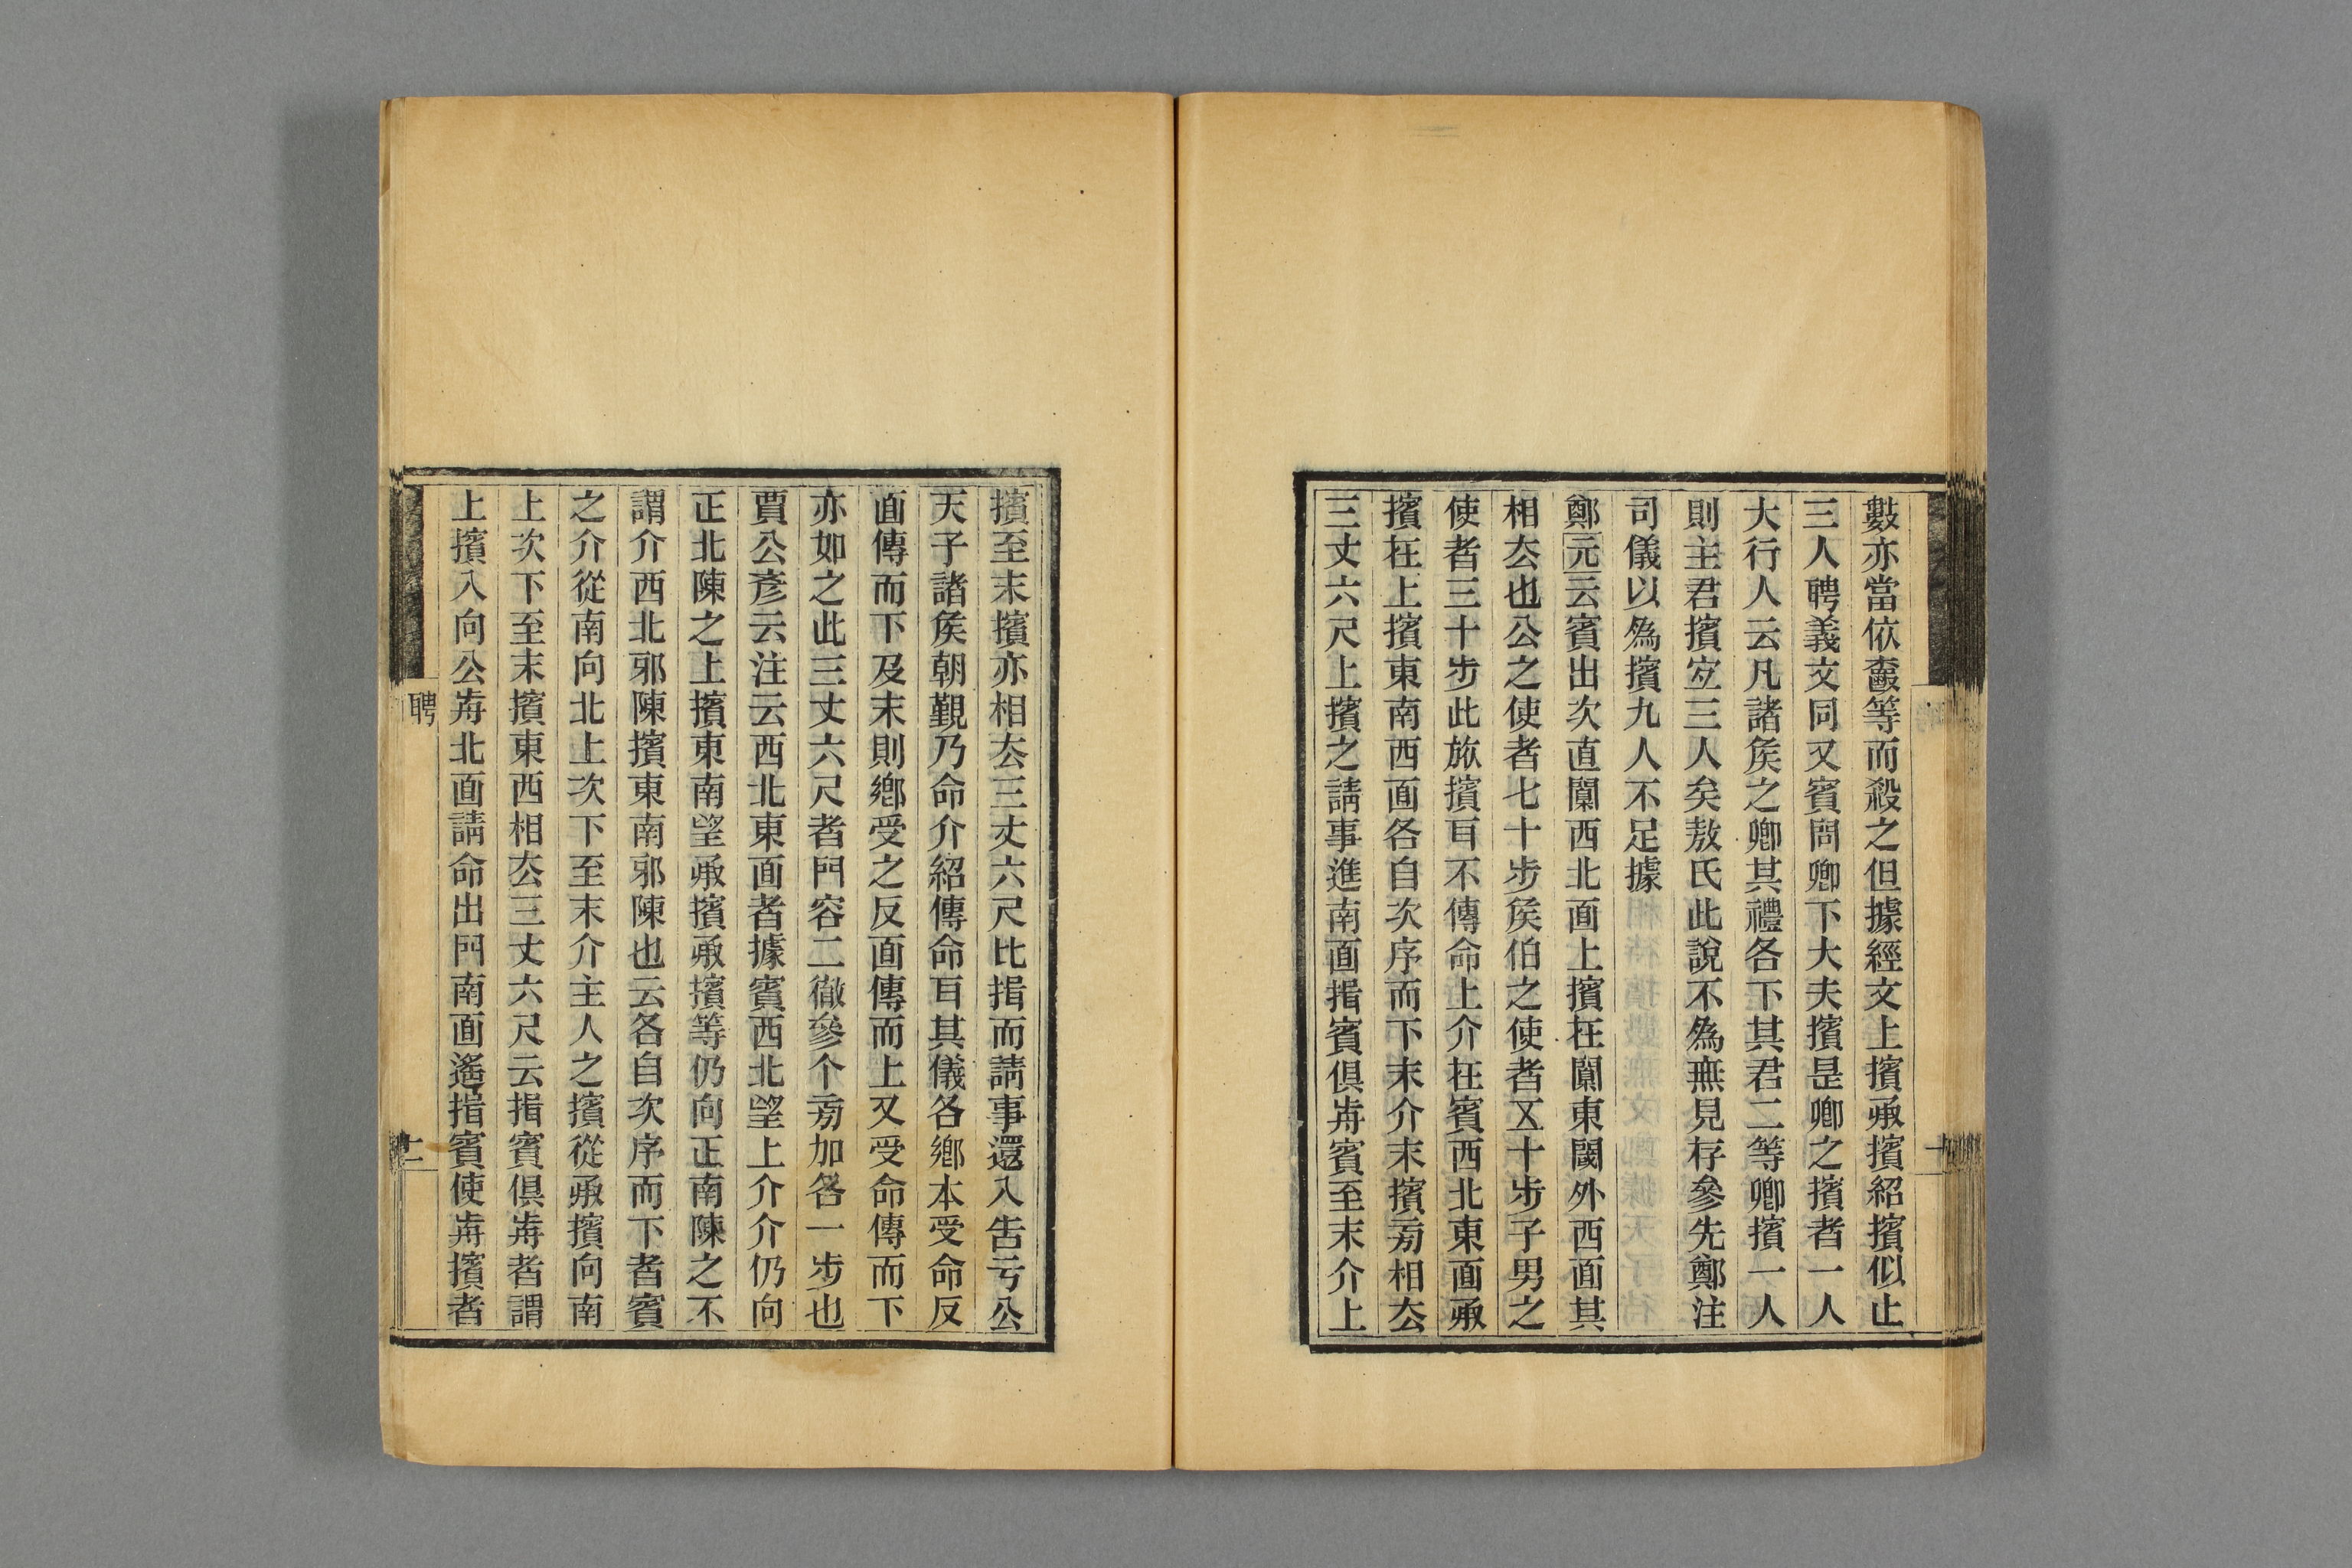 數亦當依𤔔等而殺之但據經文上擯承擯紹擯似止
三人聘義文同又賓問卿下大夫擯是卿之擯者一人
大行人云凡諸矦之卿其禮各下其君二等卿擯一人
則主君擯宐三人矣敖氏此說不爲無見存參先鄭注
司儀以爲擯九人不足據
鄭元云賓出次直闑西北面上擯在闑東閾外西面其
相去也公之使者七十步矦伯之使者五十步子男之
使者三十步此旅擯耳不傳命上介在賓西北東面承
擯在上擯東南西面各自次序而下末介末擯旁相去
三丈六尺上擯之請事進南面揖賓俱歬賓至末介上
擯至末擯亦相去三丈六尺比揖而請事還入告亏公
天子諸矦朝覲乃命介紹傳命耳其儀各鄉本受命反
面傳而下及末則鄉受之反面傳而上又受命傳而下
亦如之此三丈六尺者門容二徹參个旁加各一步也
賈公彥云注云西北東面者據賓西北望上介介仍向
正北陳之上擯東南望承擯承擯等仍向正南陳之不
謂介西北邪陳擯東南邪陳也云各自次序而下者賓
之介從南向北上次下至末介主人之擯從承擯向南
上次下至末擯東西相去三丈六尺云揖賓俱歬者謂
上擯入向公歬北面請命出門南面遙揖賓使歬擯者
聘
十二